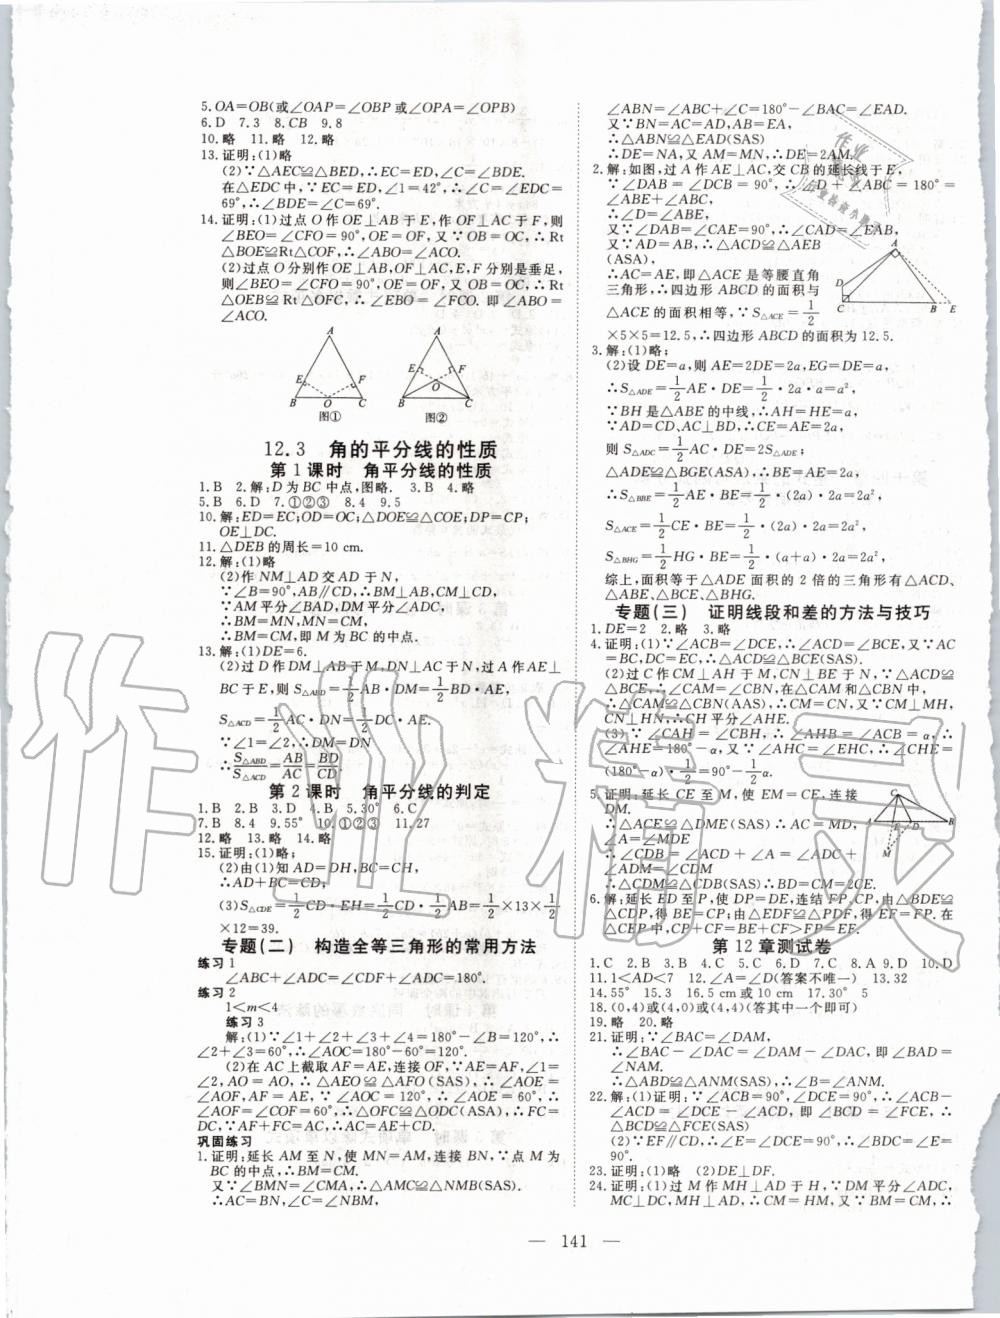 5. OA=OB(或∠OAP=∠OBP或∠OPA=∠OPB)
6. D 7. 3 8. CB 9. 8
10. 略 11. 略 12. 略
13. 证明:(1)略
(2)∵△AEC≌△BED,∴EC=ED,∠C=∠BDE.
在△EDC中,∵EC=ED,∠1=42°,∴∠C=∠EDC=
69°,∴∠BDE=∠C=69°.
14. 证明:(1)过点O作OE⊥AB于E,作OF⊥AC于F,则
∠BEO=∠CFO=90°,OE=OF,又∵OB=OC,∴Rt
△BOE≌Rt△COF,∴∠ABO=∠ACO.
(2)过点O分别作OE⊥AB,OF⊥AC,E,F分别是垂足,
则∠BEO=∠CFO=90°,OE=OF,又∵OB=OC,∴Rt
△OEB≌Rt△OFC,∴∠EBO=∠FCO. 即∠ABO=
∠ACO.
A E F B O C 图①
A E F O B C 图②
12.3 角的平分线的性质
第1课时 角平分线的性质
1. B 2. 解:D为BC中点,图略. 3. B 4. 略
5. B 6. D 7. ①②③ 8. 4 9. 5
10. 解:ED=EC;OD=OC;△DOE≌△COE;DP=CP;
OE⊥DC.
11. △DEB的周长=10 cm.
12. 解:(1)略
(2)作NM⊥AD交AD于N,
∵∠B=90°,AB∥CD,∴BM⊥AB,CM⊥CD,
∵AM平分∠BAD,DM平分∠ADC,
∴BM=MN,MN=CM,
∴BM=CM,即M为BC的中点.
13. 解:(1)DE=6.
(2)过D作DM⊥AB于M,DN⊥AC于N,过A作AE⊥
BC于E,则S△ABD=1/2AB·DM=1/2BD·AE,
S△ACD=1/2AC·DN=1/2DC·AE.
∵∠1=∠2,∴DM=DN
∴S△ABD/S△ACD=AB/AC=BD/CD.
第2课时 角平分线的判定
1. B 2. B 3. D 4. B 5. 30° 6. C
7. B 8. 4 9. 55° 10. ①②③ 11. 27
12. 略 13. 略 14. 略
15. 证明:(1)略;
(2)由(1)知AD=DH,BC=CH,
∴AD+BC=CD;
(3)S△CDE=1/2CD·EH=1/2CD·1/2AB=1/2×13×1/2
×12=39.
专题(二) 构造全等三角形的常用方法
练习1
∠ABC+∠ADC=∠CDF+∠ADC=180°.
练习2
1<m<4
练习3
解:(1)∵∠1+∠2+∠3+∠4=180°-∠B=120°,∴
∠2+∠3=60°,∴∠AOC=180°-60°=120°.
(2)在AC上截取AF=AE,连接OF,∵AF=AE,∠1=
∠2,AO=AO,∴△AEO≌△AFO(SAS),∴∠AOE=
∠AOF,AF=AE,∵∠AOC=120°,∴∠AOE=60°,∴
∠AOF=∠COF=60°,∴△OFC≌△ODC(ASA),∴FC=
DC,∵AF+FC=AC,∴AC=AE+DC.
巩固练习
1. 证明:延长AM至N,使MN=AM,连接BN,∵点M为
BC的中点,∴BM=CM.
又∵∠BMN=∠CMA,∴△AMC≌△NMB(SAS).
∴AC=BN,∠C=∠NBM,
∠ABN=∠ABC+∠C=180°-∠BAC=∠EAD.
又∵BN=AC=AD,AB=EA,
∴△ABN≌△EAD(SAS)
∴DE=NA,又AM=MN,∴DE=2AM.
2. 解:如图,过A作AE⊥AC,交CB的延长线于E,
∵∠DAB=∠DCB=90°,∴∠D+∠ABC=180°=
∠ABE+∠ABC,
∴∠D=∠ABE,
又∵∠CAE=90°,∴∠CAD=∠EAB,
又∵AD=AB,∴△ADC≌△ABE
(ASA),
∴AC=AE,即△ACE是等腰直角
三角形,∴四边形ABCD的面积与
△ACE的面积相等,∵S△ACE=1/2
×5×5=12.5,∴四边形ABCD的面积为12.5.
A D C B E
3. 解:(1)略;
(2)设DE=a,则AE=2DE=2a,EG=DE=a,
∴S△ADE=1/2AE·DE=1/2·2a·a=a²,
∵BH是△ABE的中线,∴AH=HE=a,
∵AD=CD、AC⊥BD,∴CE=AE=2a,
则S△ADC=1/2AC·DE=2S△ADE;
△ADE≌△BGE(ASA),∴BE=AE=2a,
∴S△BBE=1/2AE·BE=1/2·(2a)·2a=2a²,
S△ACE=1/2CE·BE=1/2·(2a)·2a=2a²,
S△BHG=1/2HG·BE=1/2·(a+a)·2a=2a²,
综上,面积等于△ADE面积的2倍的三角形有△ACD、
△ABE、△BCE、△BHG.
专题(三) 证明线段和差的方法与技巧
1. DE=2 2. 略 3. 略
4. 证明:(1)∵∠ACB=∠DCE,∴∠ACD=∠BCE,又∵AC
=BC,DC=EC,∴△ACD≌△BCE(SAS).
(2)过C作CM⊥AH于M,CN⊥BE于N,∵△ACD≌
△BCE,∴∠CAM=∠CBN,在△CAM和△CBN中,
∴△CAM≌△CBN(SAS),∴CM=CN,又∵CM⊥MH,
CN⊥HN,∴CH平分∠AHE.
(3)∵∠CAH=∠CBH,∴∠AHB=∠ACB=α,∴
∠AHE=180°-α,又∵∠AHC=∠EHC,∴∠CHE=
(180°-α)·1/2=90°-1/2α.
5. 证明:延长CE至M,使EM=CE,连接
DM.
∴△ACE≌△DME(SAS)∴AC=MD,
∠A=∠MDE
∴∠CDB=∠ACD+∠A=∠ADC+
∠ADM=∠CDM
∴△CDM≌△CDB(SAS)∴BC=CM=2CE.
C A E D B M
6. 解:延长ED至P,使DP=DE,连结FP,CP,由△BDE≌
△CDP,得BE=CP;由△EDF≌△PDF,得EF=FP. 在
△CEP中,CP+CF=BE+CF>FP=EF.
第12章测试卷
1. C 2. B 3. B 4. C 5. C 6. D 7. C 8. A 9. D 10. D
11. 1<AD<7 12. ∠A=∠D(答案不唯一) 13. 32
14. 55° 15. 3 16. 5 cm或10 cm 17. 30° 5
18. (0,4)或(4,0)或(4,4)(答其中一个即可)
19. 略 20. 略
21. 证明:∵∠BAC=∠DAM,
∴∠BAC-∠DAC=∠DAM-∠DAC,即∠BAD=
∠NAM.
∴△ABD≌△ANM(SAS),∴∠B=∠ANM.
22. 解:(1)证明:∵∠ACB=90°,∠DCE=90°,∴∠ACB-
∠ACD=∠DCE-∠ACD,即∠BCD=∠FCE,∴
△BCD≌△FCE(SAS)
(2)∵EF∥CD,∴∠DCE+∠E=90°,∴∠BDC=∠E=
90°.
23. 证明:(1)略 (2)DE⊥DF.
24. 证明:(1)过M作MH⊥AD于H,∵DM平分∠ADC,
MC⊥DC,MH⊥AD,∴CM=HM,又∵BM=CM,∴
— 141 —
作业精灵